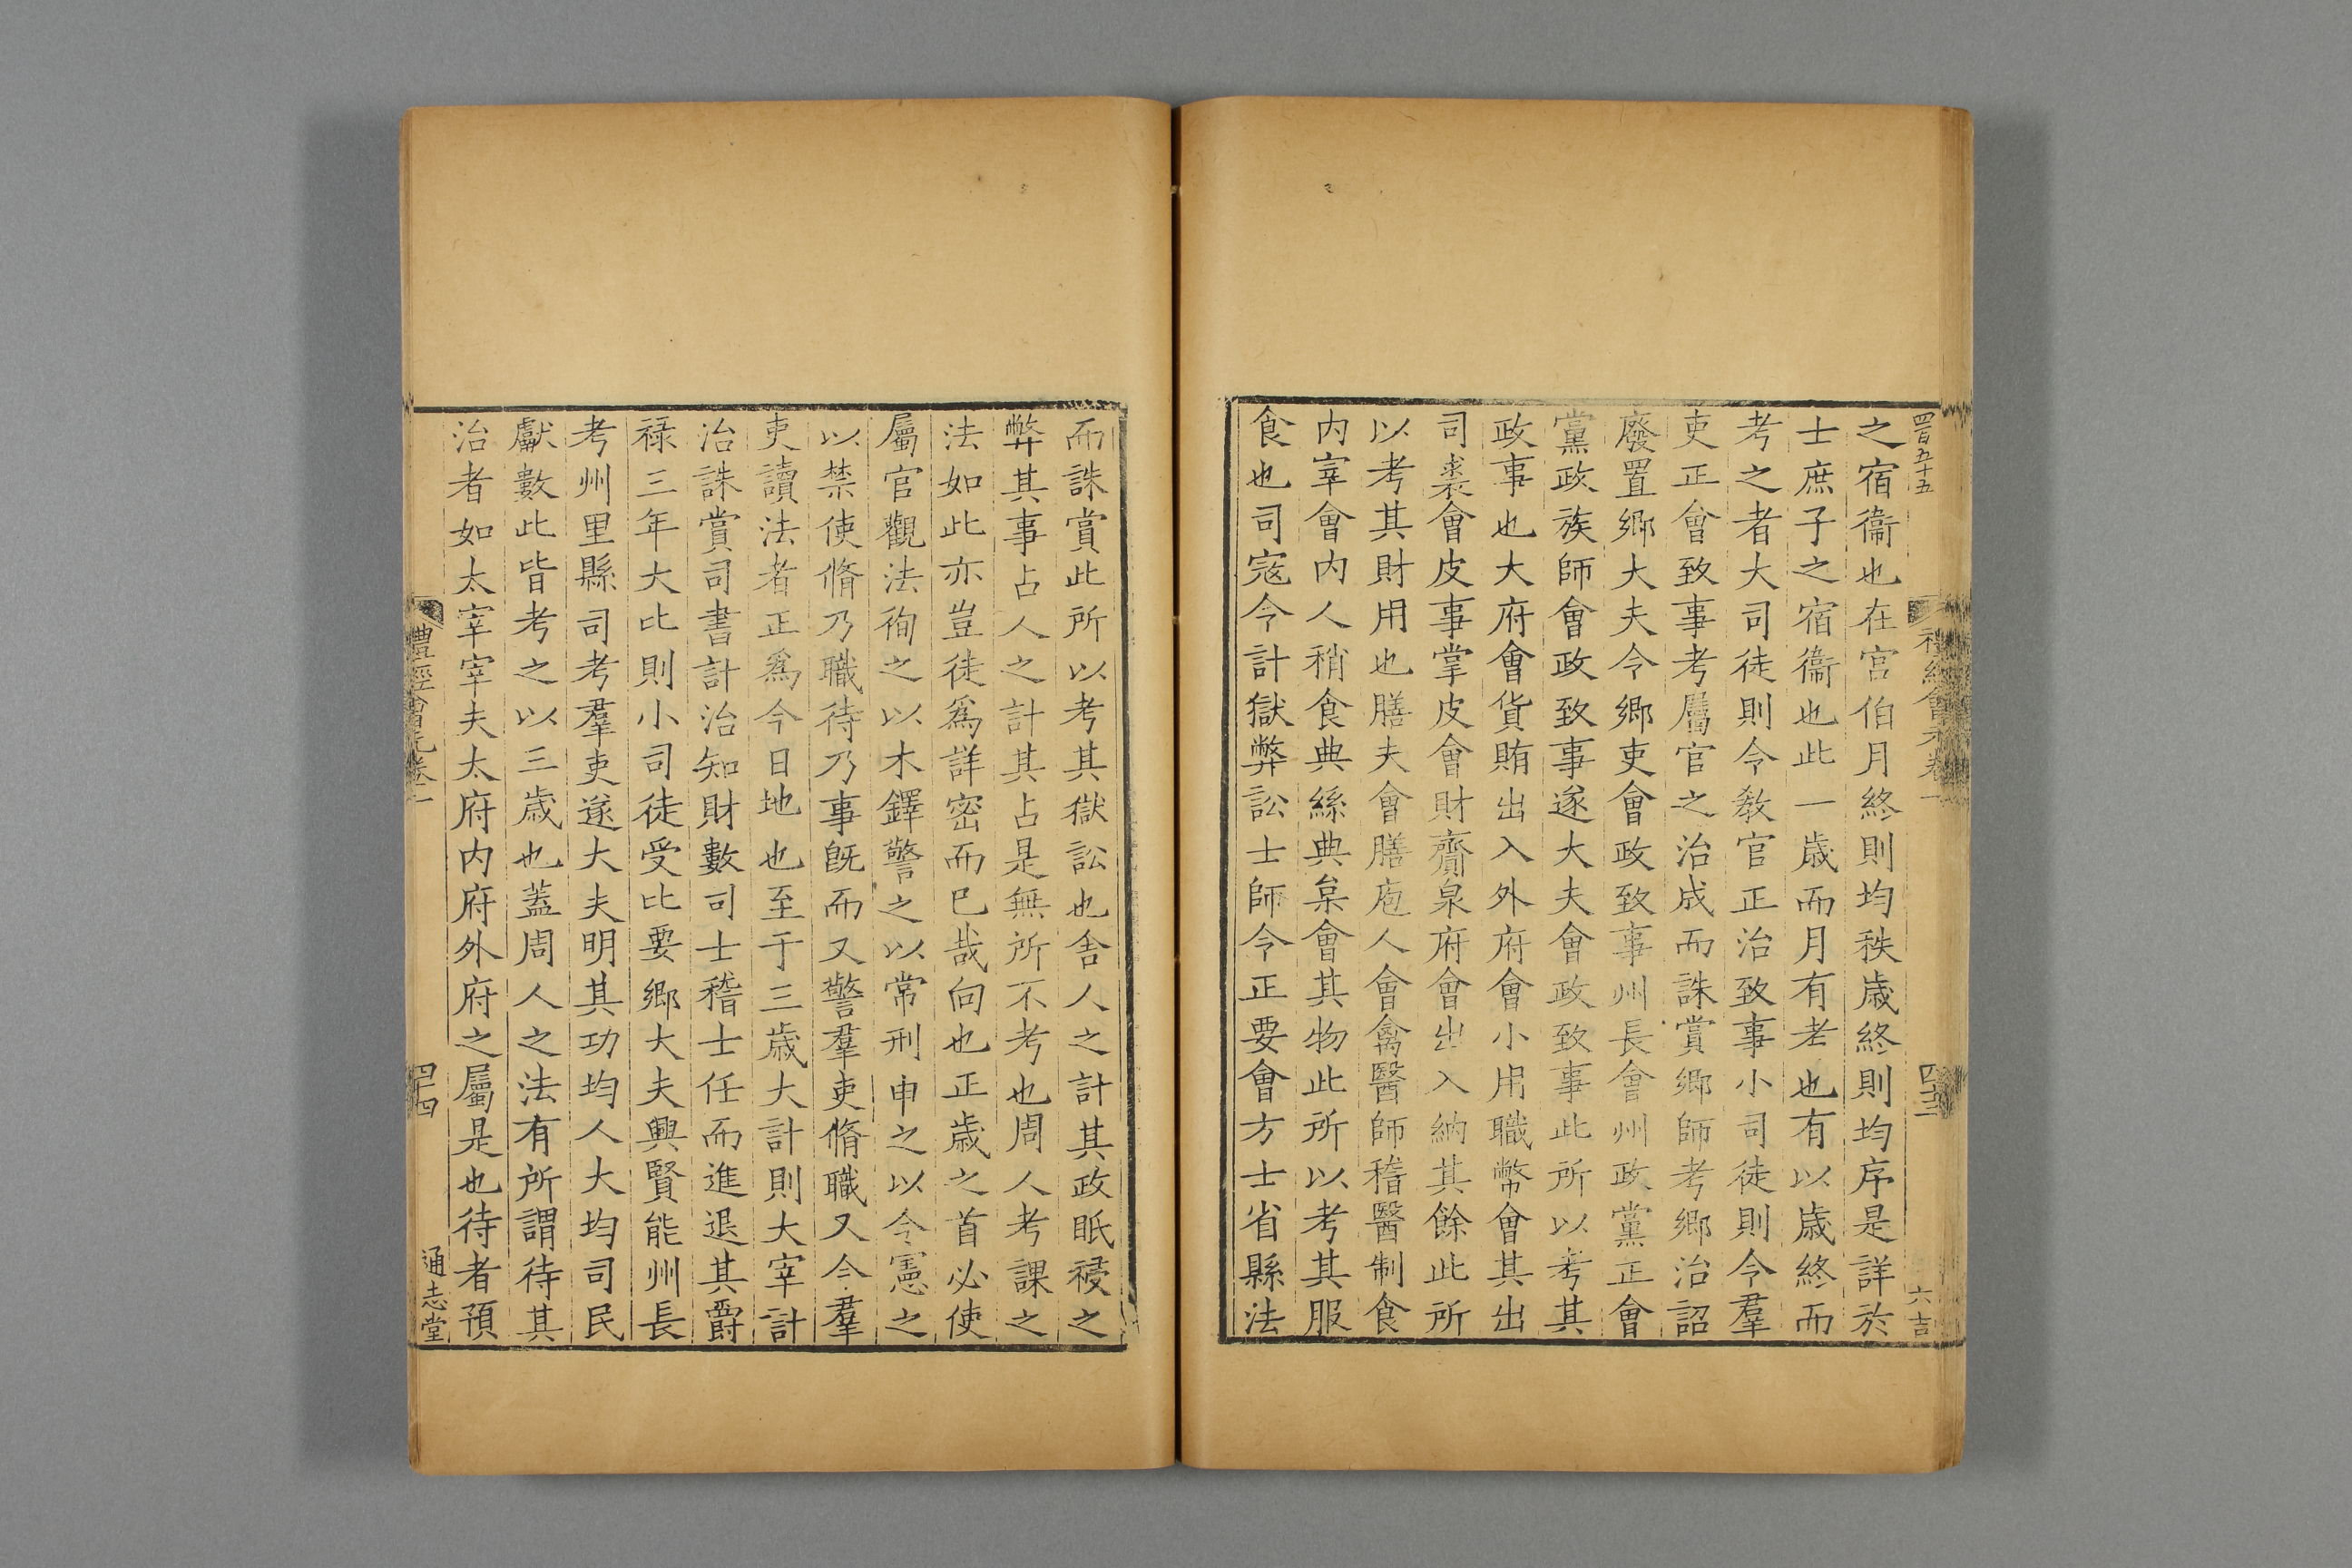 四百五十五
禮經會元卷一
四十三
六吉
之宿衞也在宫伯月終則均秩歳終則均序是詳於
士庶子之宿衞也此一歳而月有考也有以歳終而
考之者大司徒則令教官正治致事小司徒則令羣
吏正會致事考屬官之治成而誅賞鄉師考鄉治詔
廢置鄉大夫令鄉吏會政致事州長會州政黨正會
黨政族師會政致事遂大夫會政致事此所以考其
政事也大府會貨賄出入外府會小用職幣會其出
司裘會皮事掌皮會財齎泉府會出入納其餘此所
以考其財用也膳夫會膳庖人會禽醫師稽醫制食
内宰會内人稍食典絲典枲會其物此所以考其服
食也司寇令計獄弊訟士師令正要會方士省縣法
而誅賞此所以考其獄訟也舍人之計其政眡祲之
弊其事占人之計其占是無所不考也周人考課之
法如此亦豈徒爲詳密而已哉向也正歳之首必使
屬官觀法徇之以木鐸警之以常刑申之以令憲之
以禁使脩乃職待乃事旣而又警羣吏脩職又令羣
吏讀法者正爲今日地也至于三歳大計則大宰計
治誅賞司書計治知財數司士稽士任而進退其爵
禄三年大比則小司徒受比要鄉大夫興賢能州長
考州里縣司考羣吏遂大夫明其功均人大均司民
獻數此皆考之以三歳也蓋周人之法有所謂待其
治者如太宰宰夫太府内府外府之屬是也待者預
禮經會元卷一
四十四
通志堂